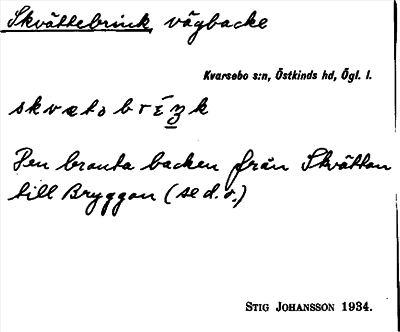 Skvättebrink, vägbacke
Kvarsebo s:n, Östkinds hd, Ögl. l.
skvætəbrɩ́ŋk
Den branta backen från Skvättan
till Bryggan (se d. o.)
STIG JOHANSSON 1934.